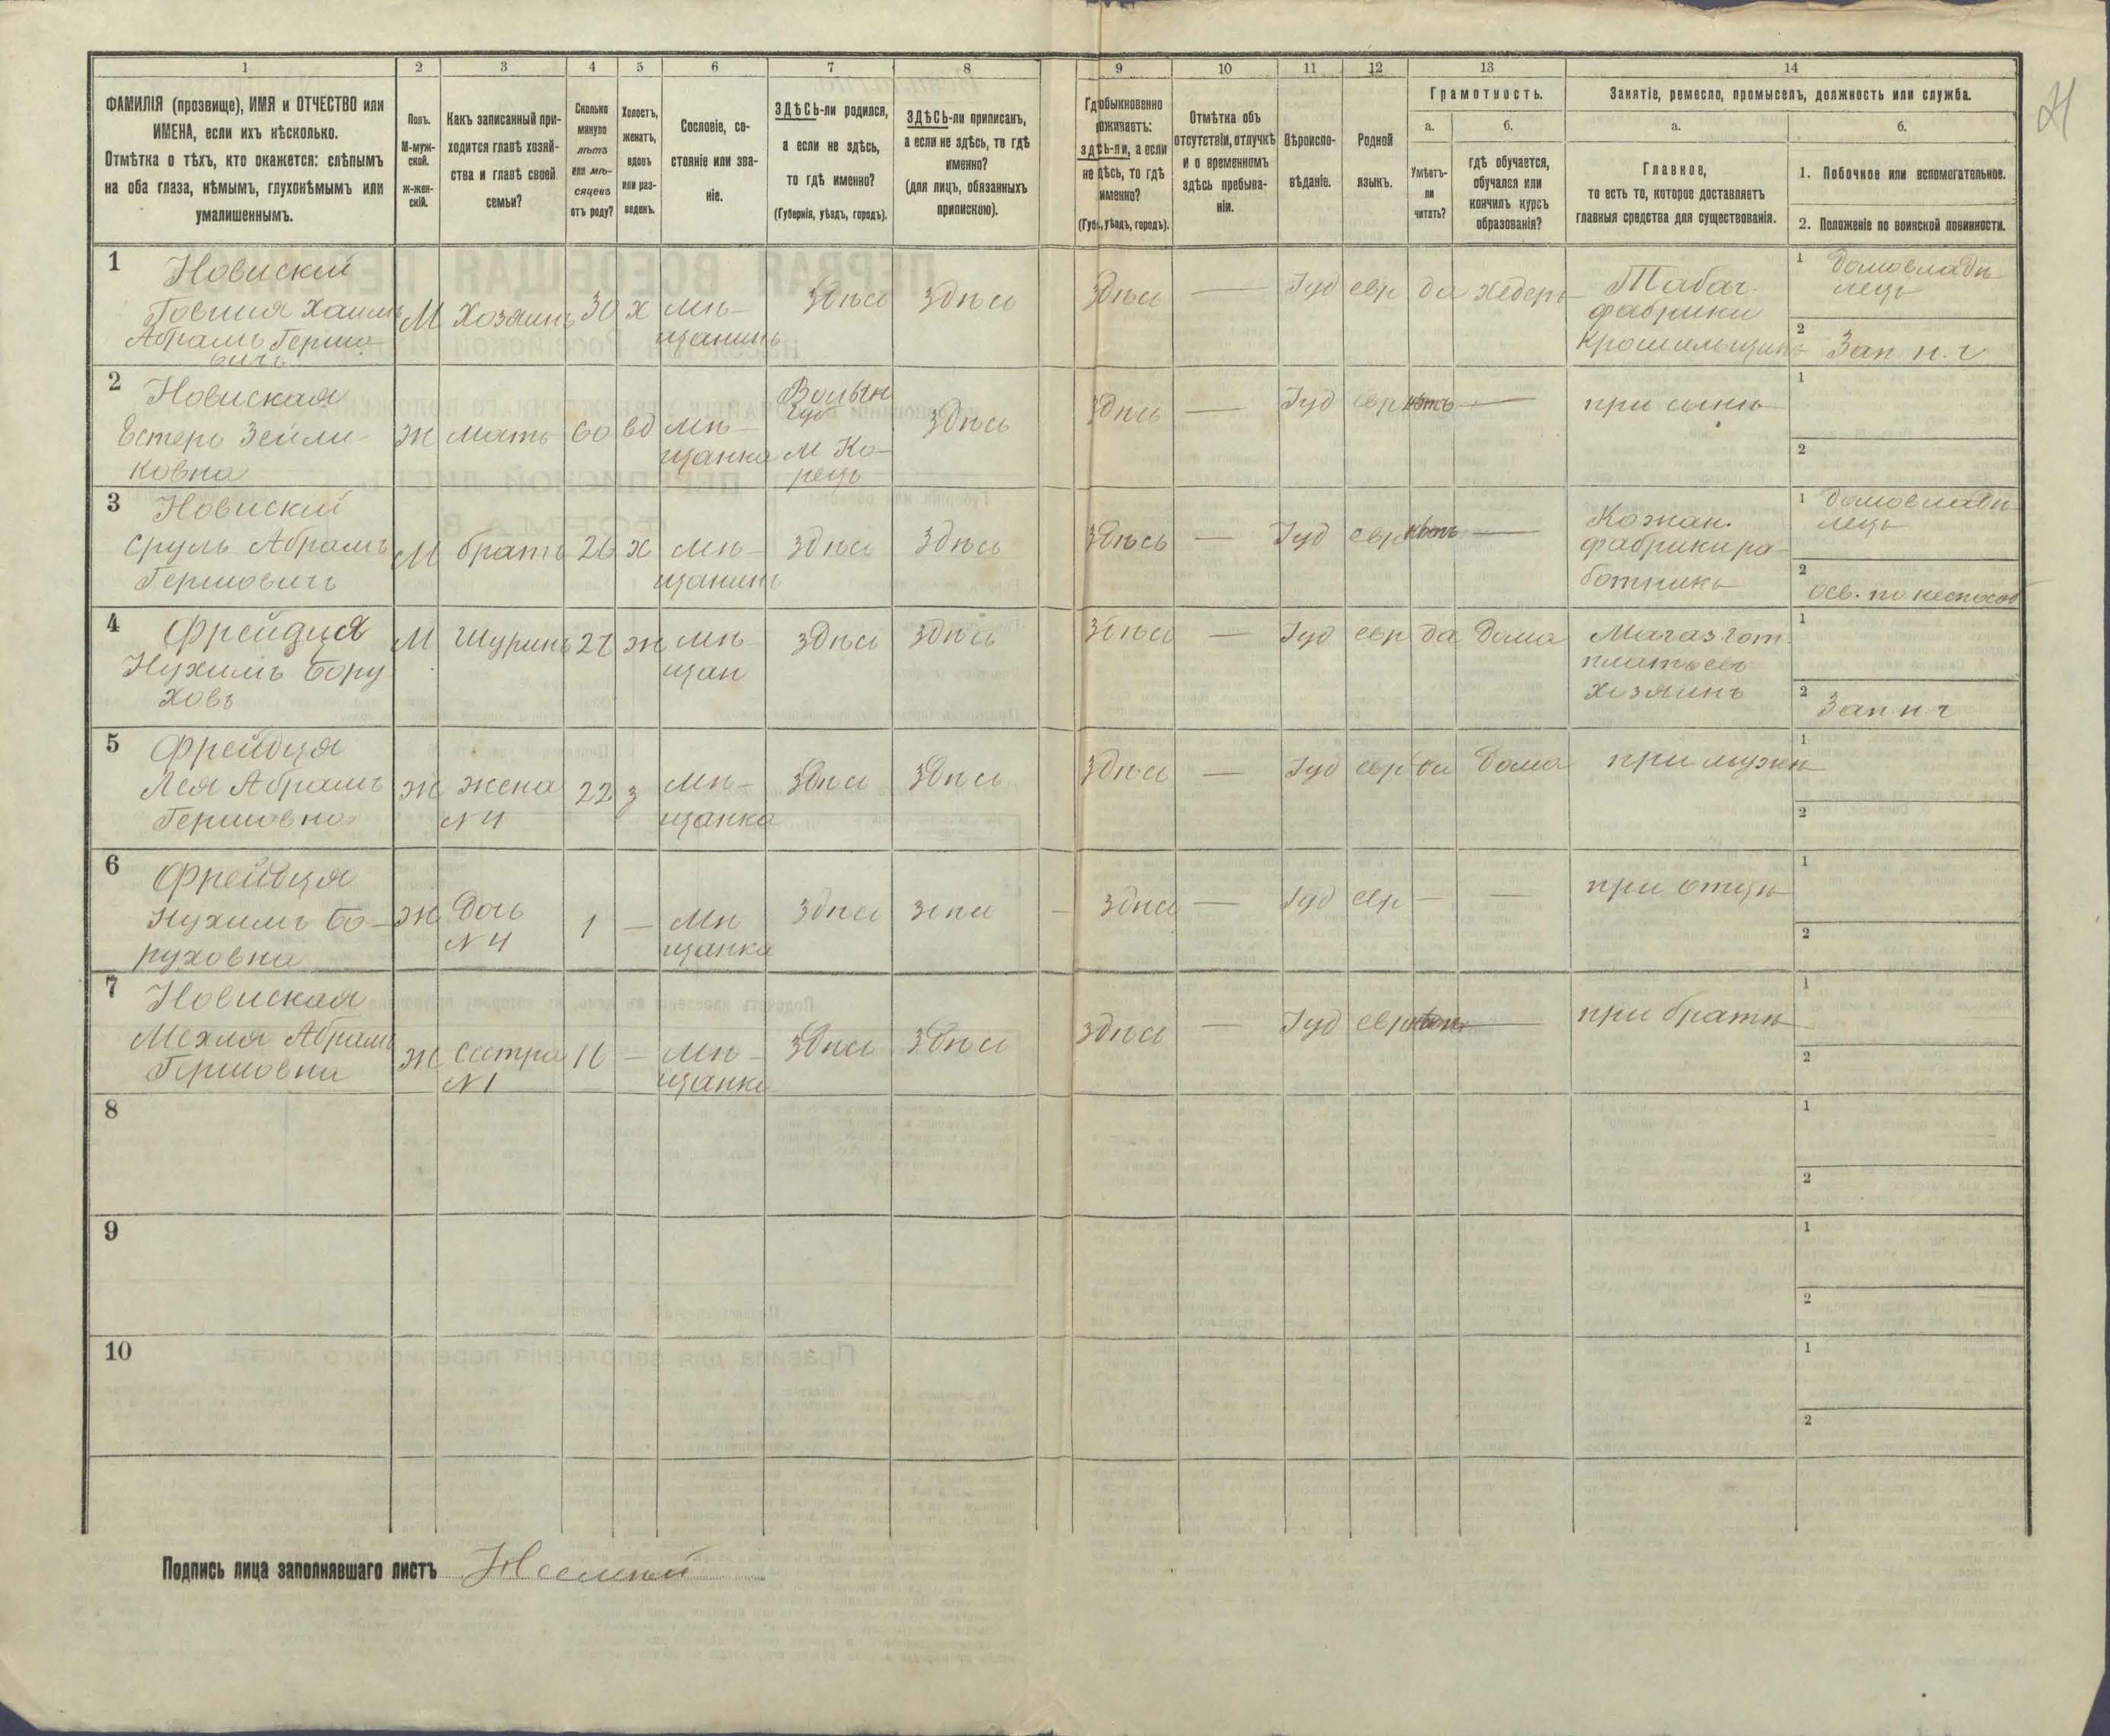 1 2 3 4 5 6 7 8 9 10 11 12 13 14
ФАМИЛІЯ (прозвище), ИМЯ и ОТЧЕСТВО или
ИМЕНА, если ихъ нѣсколько.
Отмѣтка о тѣхъ, кто окажется: слѣпымъ
на оба глаза, нѣмымъ, глухонѣмымъ или
умалишеннымъ.
Полъ.
М-муж-
ской.
ж-жен-
скій.
Какъ записанный при-
ходится главѣ хозяй-
ства и главѣ своей
семьи?
Сколько
минуло
лѣтъ
или мѣ-
сяцевъ
отъ роду?
Холостъ,
женатъ,
вдовъ
или раз-
веденъ.
Сословіе, со-
стояніе или зва-
ніе.
ЗДѢСЬ-ли родился,
а если не здѣсь,
то гдѣ именно?
(Губернія, уѣздъ, городъ).
ЗДѢСЬ-ли приписанъ,
а если не здѣсь, то гдѣ
именно?
(для лицъ, обязанныхъ
припискою).
обыкновенно
здѣсь-ли, а если
не здѣсь, то гдѣ
именно?
(Губ., уѣздъ, городъ).
Отмѣтка объ
отсутствіи, отлучкѣ
и о временномъ
здѣсь пребыва-
ніи.
Вѣроиспо-
вѣданіе.
Родной
языкъ.
Грамотность.
а.
Умѣетъ-
ли
читать?
б.
гдѣ обучается,
обучался или
кончилъ курсъ
образованія?
Занятіе, ремесло, промыселъ, должность или служба.
а.
Главное,
то есть то, которое доставляетъ
главныя средства для существованія.
б.
1. Побочное или вспомогательное.
2. Положеніе по воинской повинности.
1 Новискій
Товшия Хаимъ
Абрамъ Гершо-
вичъ
М Хозяинъ 30 х мѣ-
щанинъ
здѣсь здѣсь здѣсь — Іуд евр да хедеръ
Табач.
фабрики
крошильщикъ
1 домовладѣ-
лецъ
2 Зап. н. ч
2 Новиская
Естеръ Зейли-
ковна
ж мать 60 вд мѣ-
щанка
Волын
губ
м Ко-
рецъ
здѣсь здѣсь — Іуд евр нѣтъ —
при сынѣ
1
2
3 Новискій
Сруль Абрамъ
Гершовичъ
М братъ 26 х мѣ-
щанинъ
здѣсь здѣсь здѣсь — Іуд евр нѣтъ —
Кожан.
фабрики ра-
ботникъ
1 домовладѣ-
лецъ
2 Осв. по неспособ
4 Фрейдця
Нухимъ Бору
ховъ
М Шуринъ 27 ж мѣ-
щан
здѣсь здѣсь здѣсь — Іуд евр да дома
Магаз гот.
платьевъ
хозяинъ
1
2 Зап н ч
5 Фрейдця
Лея Абрамъ
Гершовна
ж жена
N 4
22 з мѣ-
щанка
здѣсь здѣсь здѣсь — Іуд евр да дома
при мужѣ
1
2
6 Фрейдця
Нухимъ Бо-
руховна
ж Дочь
N 4
1 — мѣ
щанка
здѣсь здѣсь — здѣсь — Іуд евр — —
при отцѣ
1
2
7 Новиская
Мехля Абрамъ
Гершовна
ж сестра
N 1
16 — мѣ-
щанка
здѣсь здѣсь здѣсь — Іуд евр нѣтъ —
при братѣ
1
2
8
1
2
9
1
2
10
1
2
Подпись лица заполнявшаго листъ